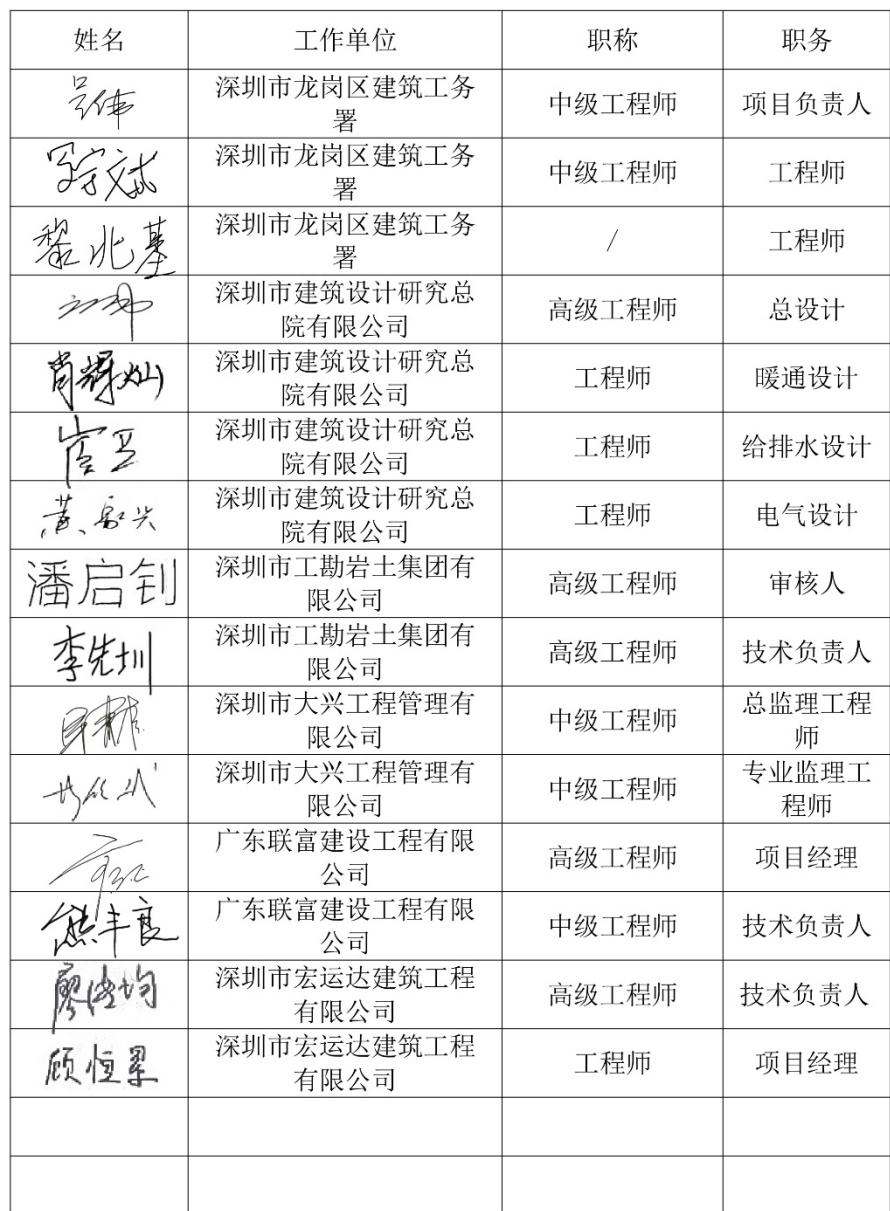 姓名 工作单位 职称 职务
吴伟 深圳市龙岗区建筑工务
署 中级工程师 项目负责人
深圳市龙岗区建筑工务
署 中级工程师 工程师
黎兆基 深圳市龙岗区建筑工务
署 / 工程师
深圳市建筑设计研究总
院有限公司 高级工程师 总设计
肖辉灿 深圳市建筑设计研究总
院有限公司 工程师 暖通设计
深圳市建筑设计研究总
院有限公司 工程师 给排水设计
深圳市建筑设计研究总
院有限公司 工程师 电气设计
潘启钊 深圳市工勘岩土集团有
限公司 高级工程师 审核人
李先圳 深圳市工勘岩土集团有
限公司 高级工程师 技术负责人
深圳市大兴工程管理有
限公司 中级工程师 总监理工程
师
深圳市大兴工程管理有
限公司 中级工程师 专业监理工
程师
广东联富建设工程有限
公司 高级工程师 项目经理
熊丰良 广东联富建设工程有限
公司 中级工程师 技术负责人
深圳市宏运达建筑工程
有限公司 高级工程师 技术负责人
顾恒星 深圳市宏运达建筑工程
有限公司 工程师 项目经理